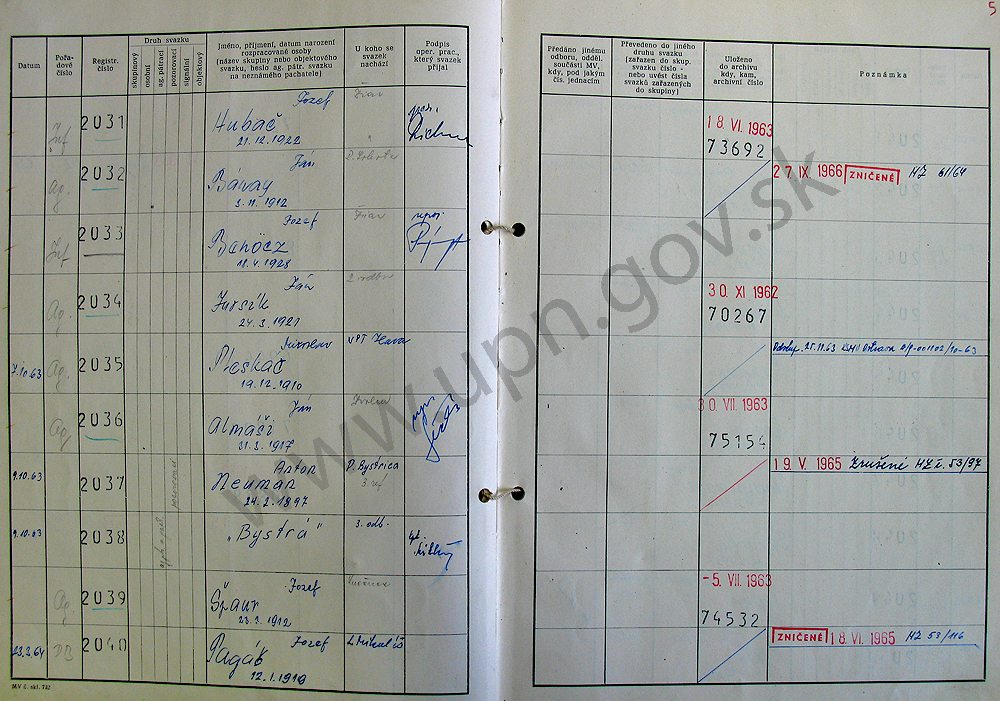 5
Datum
Pořadové číslo
Registr. číslo
Druh svazku
skupinový
osobní
ag. pátrací
pozorovací
signální
objektový
Jméno, příjmení, datum narození
rozpracované osoby
(název skupiny nebo objektového
svazku, heslo ag. pátr. svazku
na neznámého pachatele)
U koho se
svazek
nachází
Podpis
oper. prac.,
který svazek
přijal
Předáno jinému
odboru, odděl.
součásti MV,
kdy, pod jakým
čís. jednacím
Převedeno do jiného
druhu svazku
(zařazen do skup.
svazku číslo -
nebo uvést čísla
svazků zařazených
do skupiny)
Uloženo
do archivu
kdy, kam,
archivní číslo
Poznámka
Inf 2031 Jozef
Hubač
21.12.1922
18. VI. 1963
73692
ag. 2032 Ján
Bávay
3.11.1912
27 IX. 1966 ZNIČENÉ HZ 61/64
Inf 2033 Jozef
Banócz
18.4.1928
Ag. 2034 Ján
Jursík
24.3.1921
30. XI 1962
70267
7.10.63 Ag. 2035 Miroslav
Pleskáč
19.12.1910
25.11.63 Ostrava
Ag 2036 Ján
Almáši
31.3.1917
30. VII. 1963
75154
9.10.63 2037 pozorovací Anton
Neuman
24.2.1897
P. Bystrica
3. ref
19. V. 1965 Zrušené HZ č. 53/97
9.10.63 2038 „Bystrá" 3. odb.
Ag 2039 Jozef
Špaur
23.3.1912
-5. VII. 1963
74532
23.3.64 DB 2040 Jozef
Pagáč
12.1.1919
L. Mikuláš
ZNIČENÉ 18. VI. 1965 HZ 53/116
MV č. skl. 732
www.upn.gov.sk